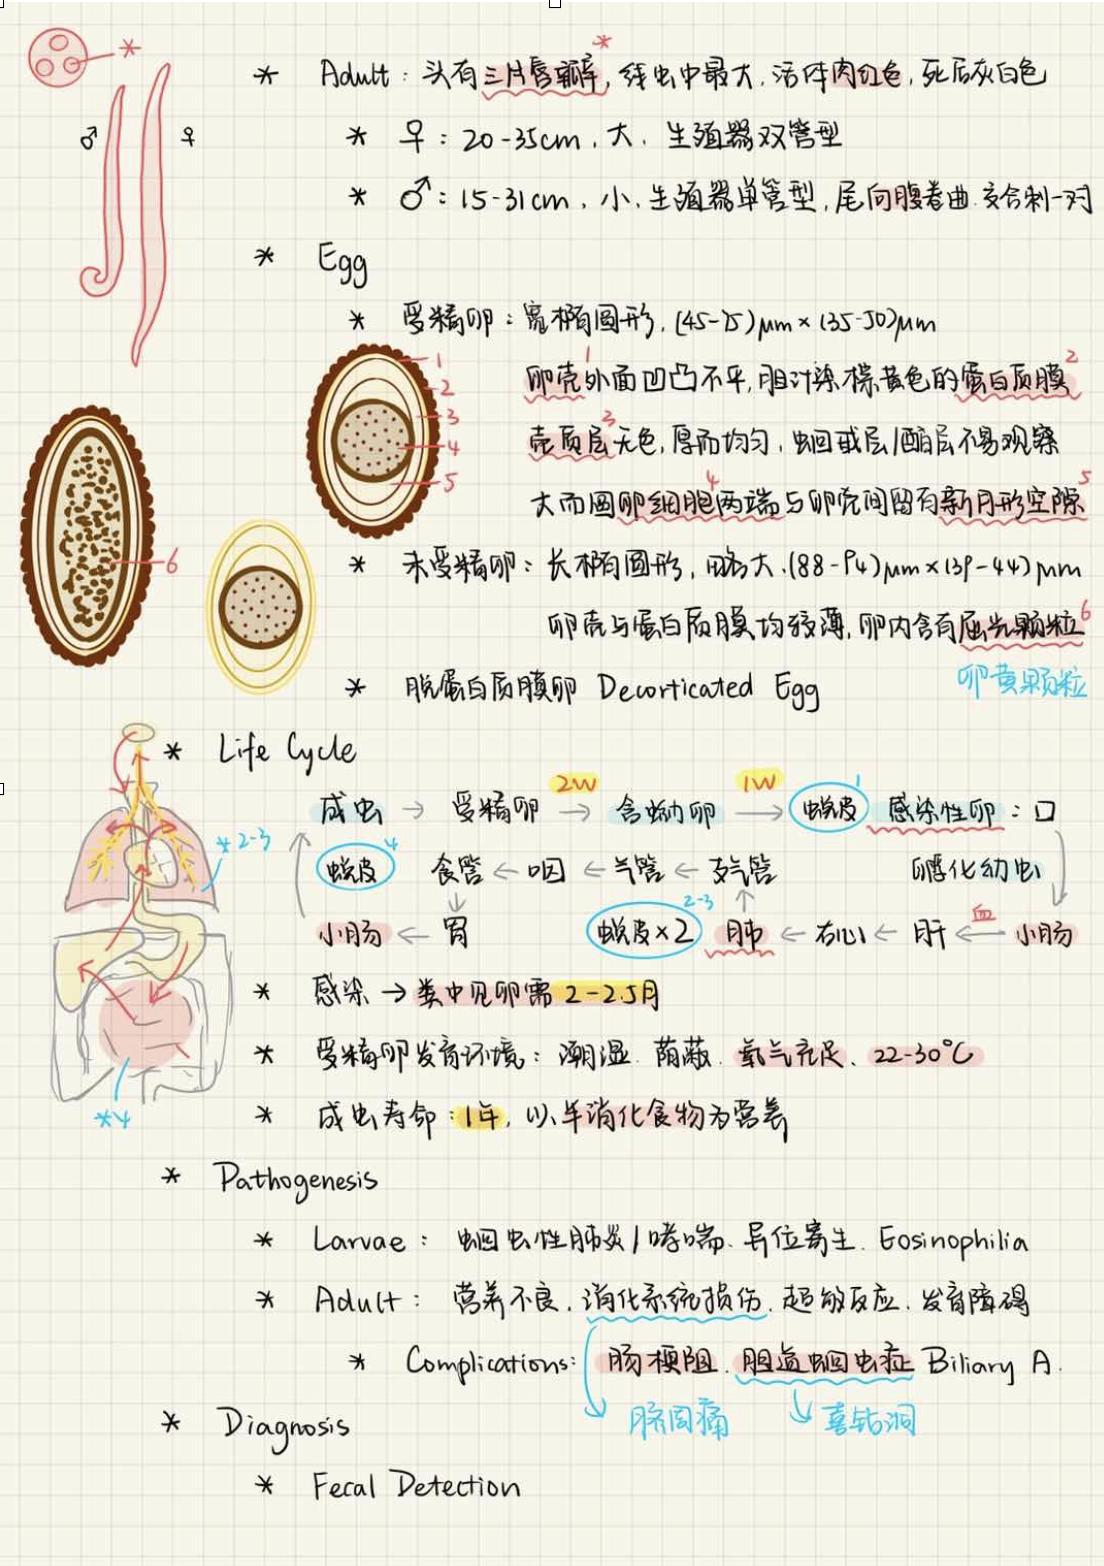 * Adult: 头有三片唇瓣*, 线虫中最大. 活体肉红色, 死后灰白色
♂ ♀
* ♀: 20-35cm, 大, 生殖器双管型
* ♂: 15-31cm, 小, 生殖器单管型, 尾向腹卷曲. 交合刺一对
* Egg
* 受精卵: 宽椭圆形, (45-75)μm×(35-50)μm
卵壳1外面凹凸不平, 胆汁染棕黄色的蛋白质膜2
壳质层3无色, 厚而均匀, 蛔甙层/酯层不易观察
大而圆卵细胞4两端与卵壳间留有新月形空隙5
1
2
3
4
5
6
* 未受精卵: 长椭圆形, 略大.(88-94)μm×(39-44)μm
卵壳与蛋白质膜均较薄, 卵内含有屈光颗粒6
卵黄颗粒
* 脱蛋白质膜卵 Decorticated Egg
* Life Cycle
成虫 → 受精卵 2W→ 含蚴卵 1W→ 蜕皮1 感染性卵: 口
*2-3
蜕皮4 食管 ← 咽 ← 气管 ← 支气管 孵化幼虫
小肠 ← 胃 蜕皮×2 2-3 肺 ← 右心 ← 肝 ←血 小肠
* 感染 → 粪中见卵需 2-2.5月
* 受精卵发育环境: 潮湿. 荫蔽. 氧气充足、22-30°C
*4
* 成虫寿命: 1年, 以半消化食物为营养
* Pathogenesis
* Larvae: 蛔虫性肺炎/哮喘、异位寄生. Eosinophilia
* Adult: 营养不良. 消化系统损伤. 超敏反应. 发育障碍
* Complications: 肠梗阻. 胆道蛔虫症 Biliary A.
脐周痛 喜钻洞
* Diagnosis
* Fecal Detection